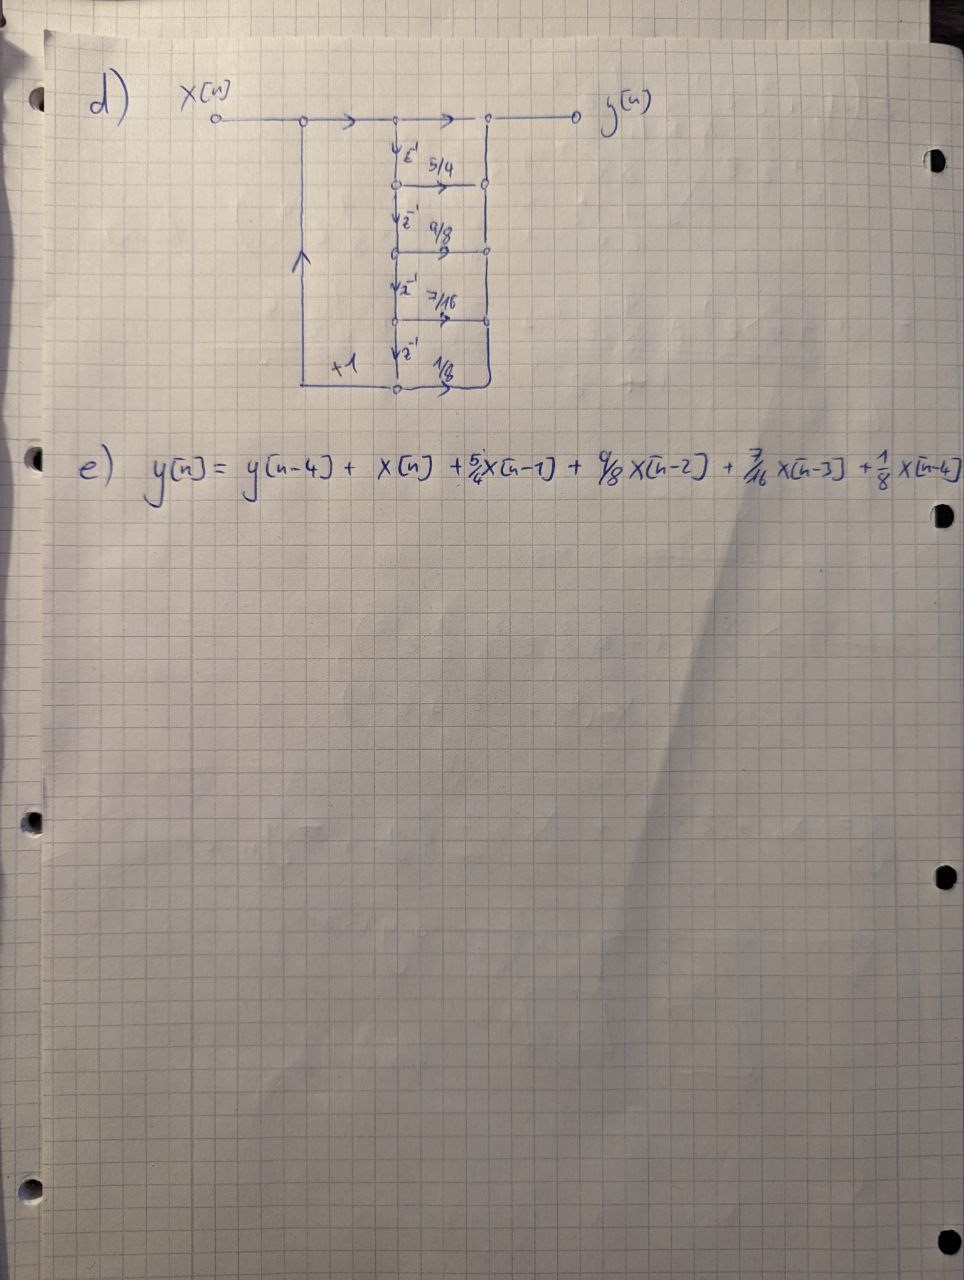 d) x[n] y[n]
z⁻¹ 5/4
z⁻¹ 9/8
z⁻¹ 7/16
+1 z⁻¹ 1/8
e) y[n] = y[n-4] + x[n] + 5/4 x[n-1] + 9/8 x[n-2] + 7/16 x[n-3] + 1/8 x[n-4]